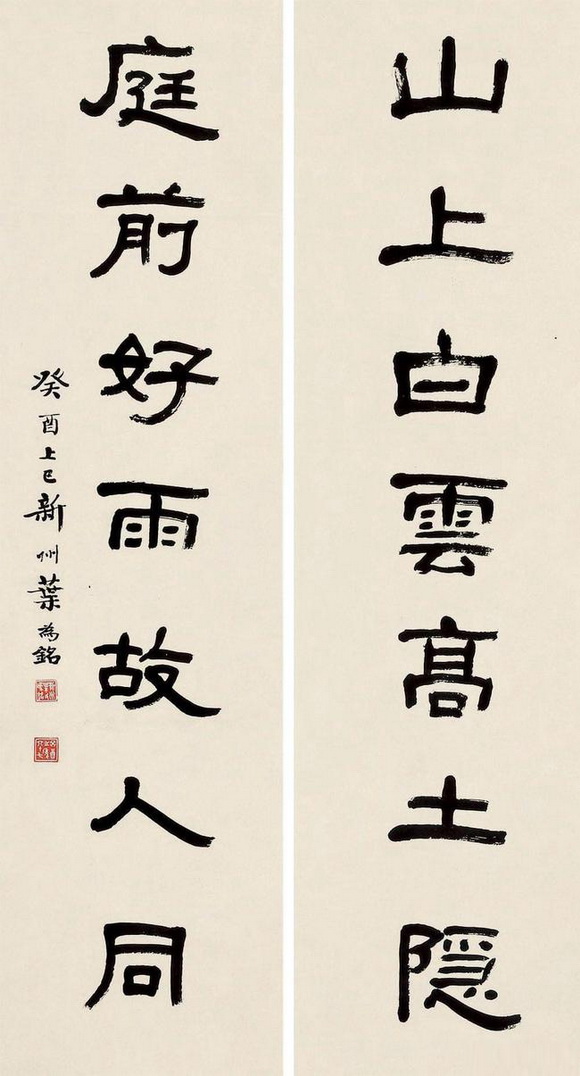 山上白雲高土隱
庭前好雨故人同
癸酉上巳新州葉為銘